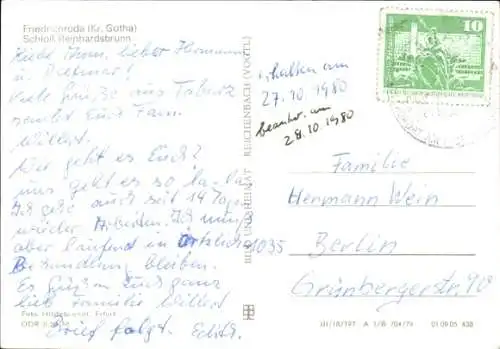 Friedrichroda (Kr. Gotha)
Schloß Reinhardsbrunn
lieber Hermann
u. Dietmar!
Viele Grüße aus Tabarz
sendet Euch Fam.
Willert.
Wie geht es Euch?
uns geht es so la-la.
Ich gehe auch seit 14 Tagen
wieder Arbeiten. Ich muß
aber laufend in ärztlicher
Behandlung bleiben.
Es grüßen Euch ganz
lieb Familie Willert
Foto: Hildebrandt, Erfurt
Brief folgt. Edith.
BILD UND HEIMAT REICHENBACH (VOGTL)
erhalten am
27.10.1980
beantw. am
28.10.1980
10
Familie
Hermann Wein
1035
Berlin
Grünbergerstr. 40
III/18/197 A 1/B 704/79 01 09 05 438